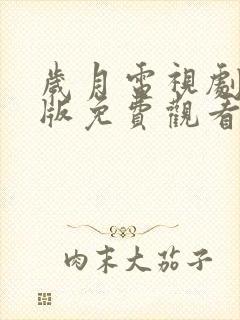 歲月雷視劇
版免費觀看
肉末大茄子